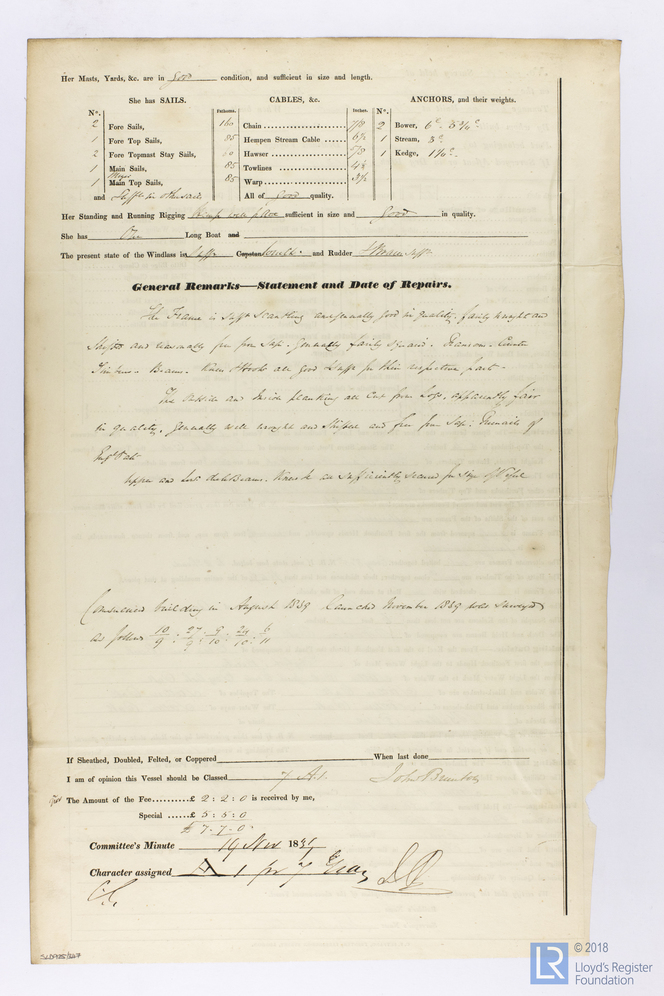 Her Masts, Yards, &c. are in good condition, and sufficient in size and length.
She has SAILS. CABLES, &c. ANCHORS, and their weights.
N°. Fathoms. Inches. N°.
2 Fore Sails, 160 Chain 7/8 2 Bower,
1 Fore Top Sails, 85 Hempen Stream Cable 6½ 1 Stream,
2 Fore Topmast Stay Sails, Hawser 1 Kedge,
1 Main Sails, 85 Towlines
1 Main Top Sails, 85 Warp
and All of Good quality.
Her Standing and Running Rigging Hemp sufficient in size and good in quality.
She has One Long Boat and
The present state of the Windlass is Capstan and Rudder
General Remarks—Statement and Date of Repairs.
The Frame is Sufft Scantling and generally good in quality. fairly wrought and
and generally free from Sap. Generally fairly squared. Transom
Timbers. Beams. Knees & Hooks are good & sufft for their respective parts.
The outside and Inside planking are Cut from Logs, apparently fair
in quality. generally well wrought and Shifted and free from Sap. Treenails of
Engl Oak
Upper and decks Beams. Knees &c are Sufficiently secured for size of Vessel
Commenced building in August 1839 Launched November 1839 was Surveyed
as follows 10/9 : 27/9 : 9/10 : 24/10 : 6/11
If Sheathed, Doubled, Felted, or Coppered When last done
I am of opinion this Vessel should be Classed 7 A.1. John Brunton
The Amount of the Fee..........£ 2 : 2 : 0 is received by me,
Special ......£ 5 : 5 : 0
£ 7 . 7 . 0
Committee's Minute 19 Nov 1839
Character assigned A 1 for 7 Years
© 2018
LR
Lloyd's Register
Foundation